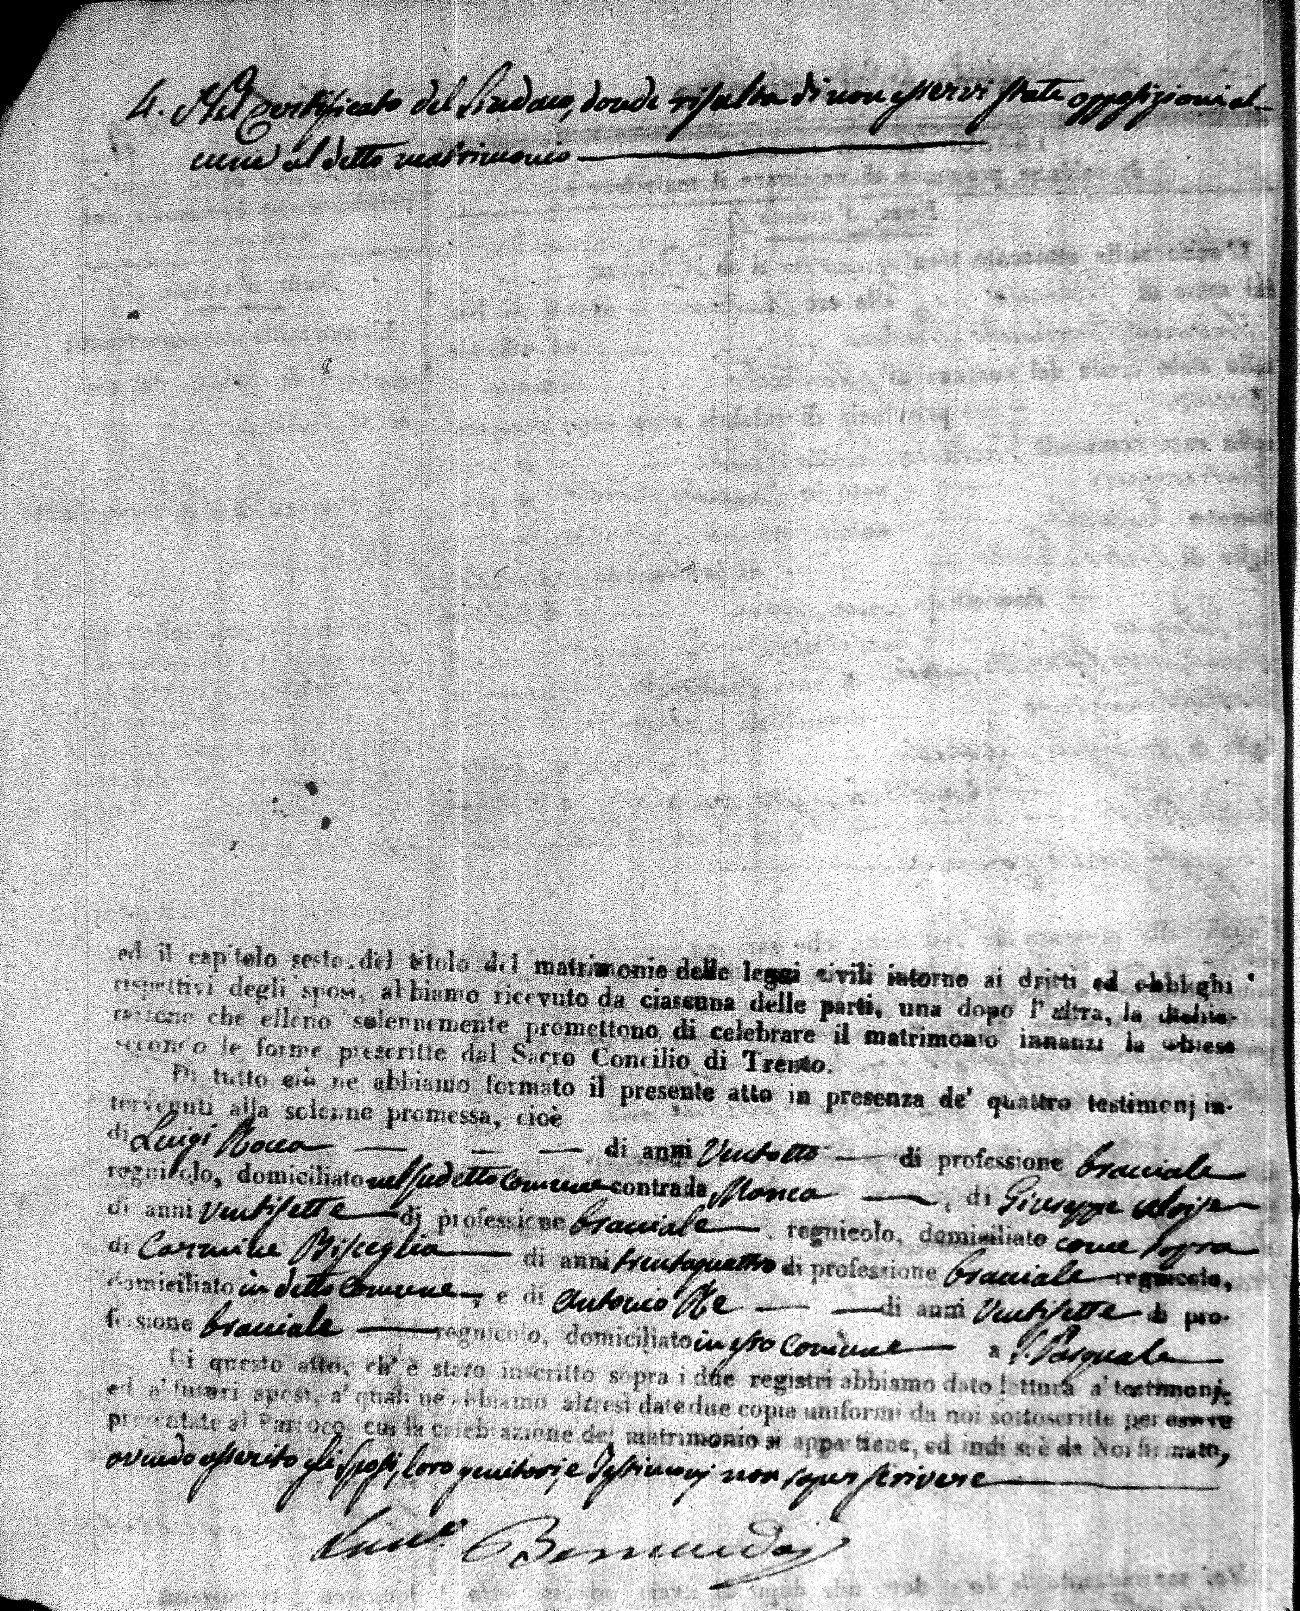 4. Nel Certificato del Sindaco, donde risulta di non esservi state opposizioni al-
cune al detto matrimonio
ed il capitolo sesto del titolo del matrimonio delle leggi civili intorno ai dritti ed obblighi
rispettivi degli sposi, abbiamo ricevuto da ciascuna delle parti, una dopo l'altra, la dichia-
razione che elleno solennemente promettono di celebrare il matrimonio innanzi la chiesa
secondo le forme prescritte dal Sacro Concilio di Trento.
Di tutto ciò ne abbiamo formato il presente atto in presenza de' quattro testimonj in-
tervenuti alla solenne promessa, cioè
di Luigi Rocca di anni Ventotto di professione bracciale
regnicolo, domiciliato nel sudetto Comune contrada , di Giuseppe Aloise
di anni Ventisette di professione bracciale , regnicolo, domiciliato come sopra
di Carmine Bisceglia di anni trentaquattro di professione bracciale regnicolo,
domiciliato in detto Comune , e di Antonio Re di anni Ventisette di pro-
fessione bracciale regnicolo, domiciliato in esso Comune a S. Pasquale
Di questo atto, ch'è stato inscritto sopra i due registri abbiamo dato lettura a' testimonj,
ed a' futuri sposi, a' quali ne abbiamo altresì date due copie uniformi da noi sottoscritte per essere
presentate al Parroco, cui la celebrazione del matrimonio si appartiene, ed indi si è da Noi firmato,
avendo asserito gli sposi, loro genitori, e Testimonj non saper scrivere